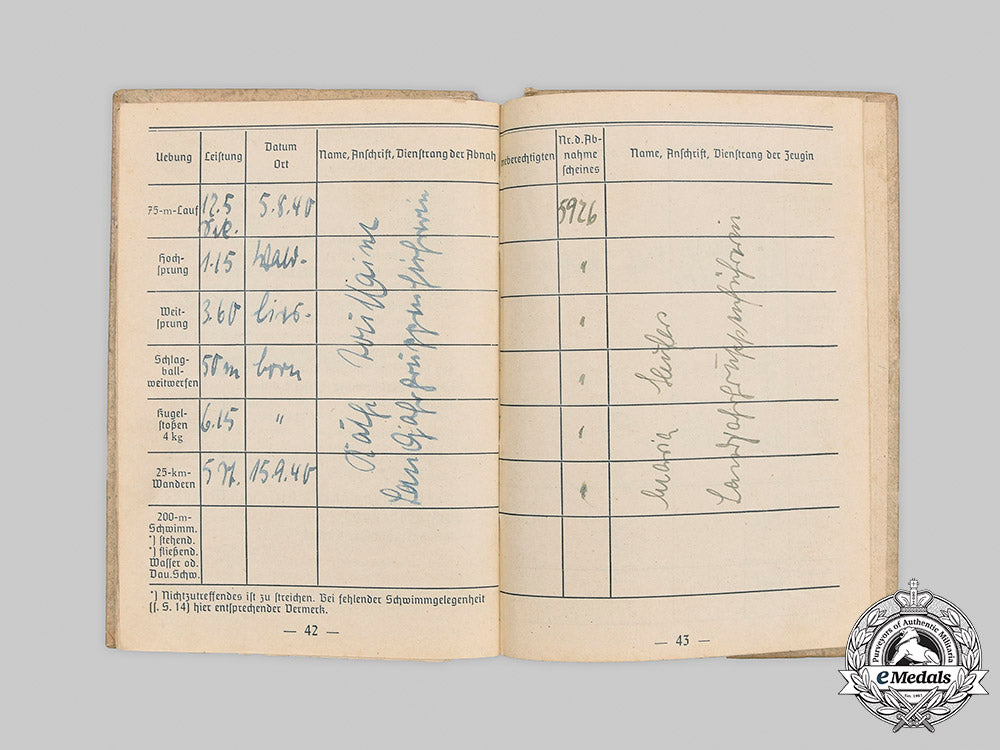 Uebung Leistung Datum Ort Name, Anschrift, Dienstrang der Abnah
75-m-Lauf 12.5 Sek. 5.8.40
Hoch-sprung 1.15 Wald-
Weit-sprung 3.60 lies-
Schlag-ball-weitwerfen 50 m born
Kugel-stoßen 4 kg 6.15 "
25-km-Wandern 15.9.40
200-m-Schwimm. *) stehend. *) fließend. Wasser od. Dau.Schw.
Käthe
Landjahrgruppenführerin
*) Nichtzutreffendes ist zu streichen. Bei fehlender Schwimmgelegenheit
(s. S. 14) hier entsprechender Vermerk.
— 42 —
meberechtigten Nr. d. Ab-nahme scheines Name, Anschrift, Dienstrang der Zeugin
5926
"
"
"
"
"
Maria
Landjahrgruppenführerin
— 43 —
Purveyors of Authentic Militaria
eMedals